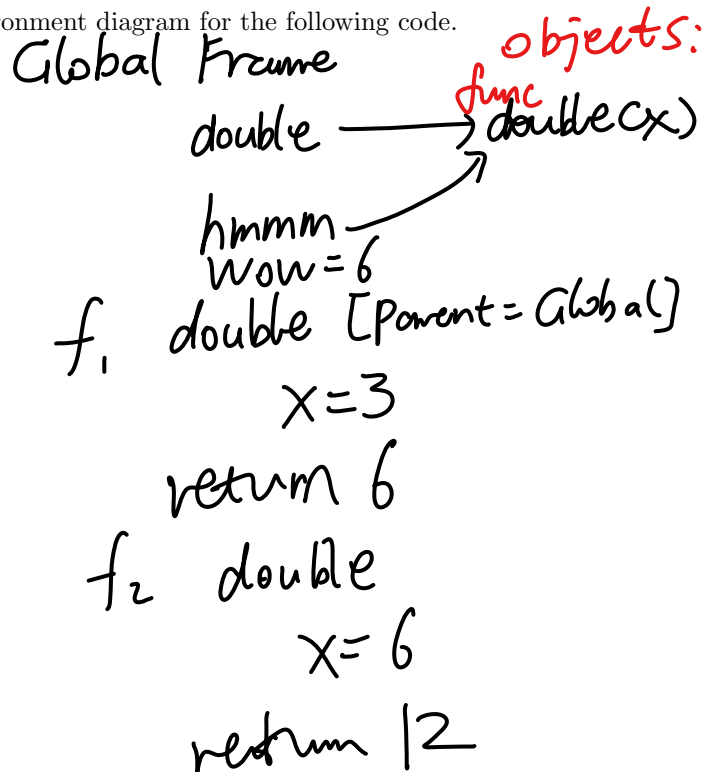 onment diagram for the following code.
Global Frame
objects:
func
double double(x)
hmmm
wow = 6
f1 double [Parent = Global]
x = 3
return 6
f2 double
x = 6
return 12